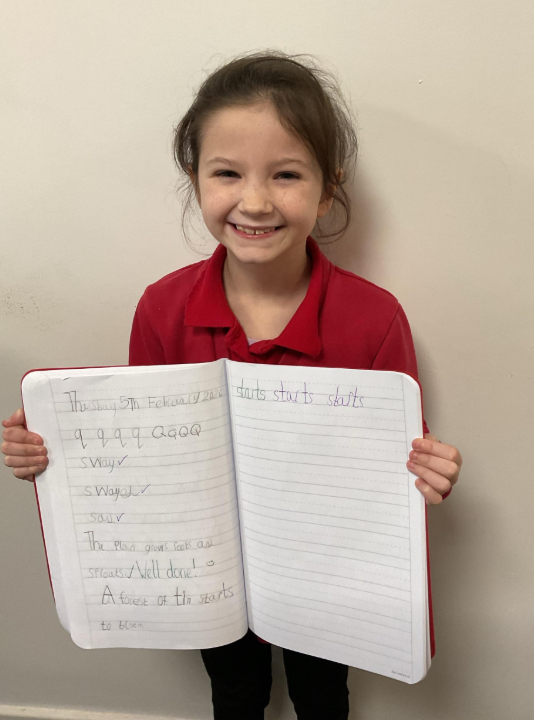 Thursday 5th February 2026
q q q q Q Q Q Q
sway ✓
swayed ✓
said ✓
The plant grows roots and
sprouts / Well done!
A forest of tin starts
to bloom
starts starts starts